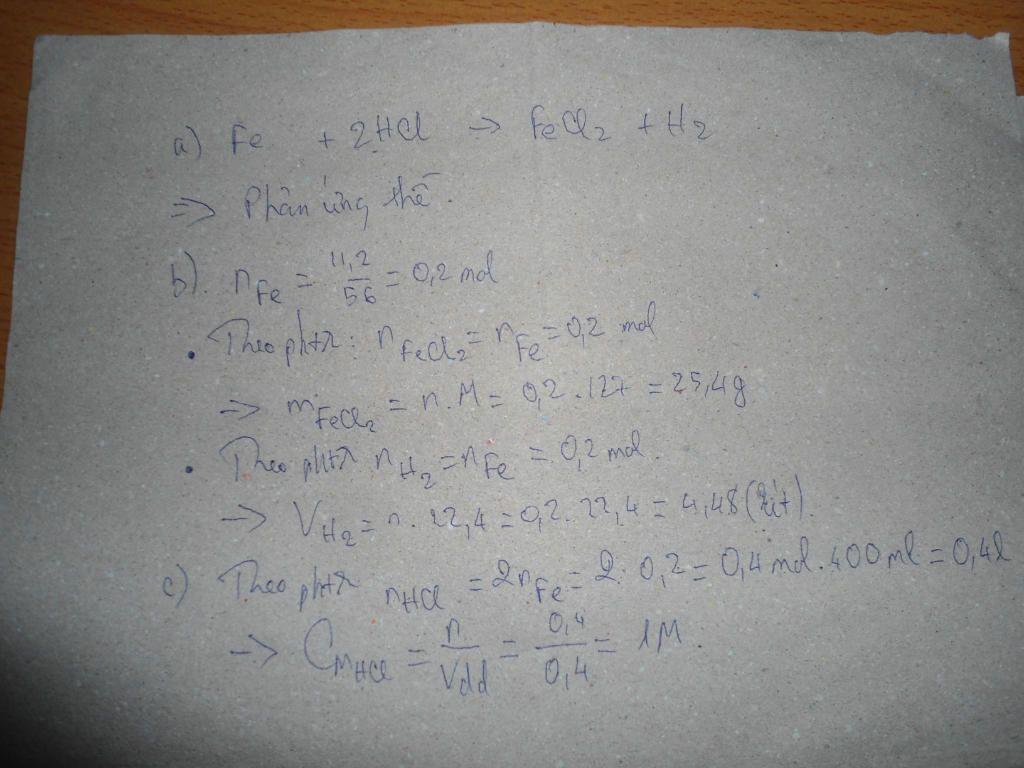 a) Fe + 2HCl → FeCl2 + H2
=> Phản ứng thế.
b). nFe = 11,2/56 = 0,2 mol
• Theo phtr: nFeCl2 = nFe = 0,2 mol
→ mFeCl2 = n.M = 0,2.127 = 25,4g
• Theo phtr nH2 = nFe = 0,2 mol.
→ VH2 = n.22,4 = 0,2.22,4 = 4,48 (lít).
c) Theo phtr nHCl = 2nFe = 2.0,2 = 0,4 mol. 400ml = 0,4l
→ CMHCl = n/Vdd = 0,4/0,4 = 1M.